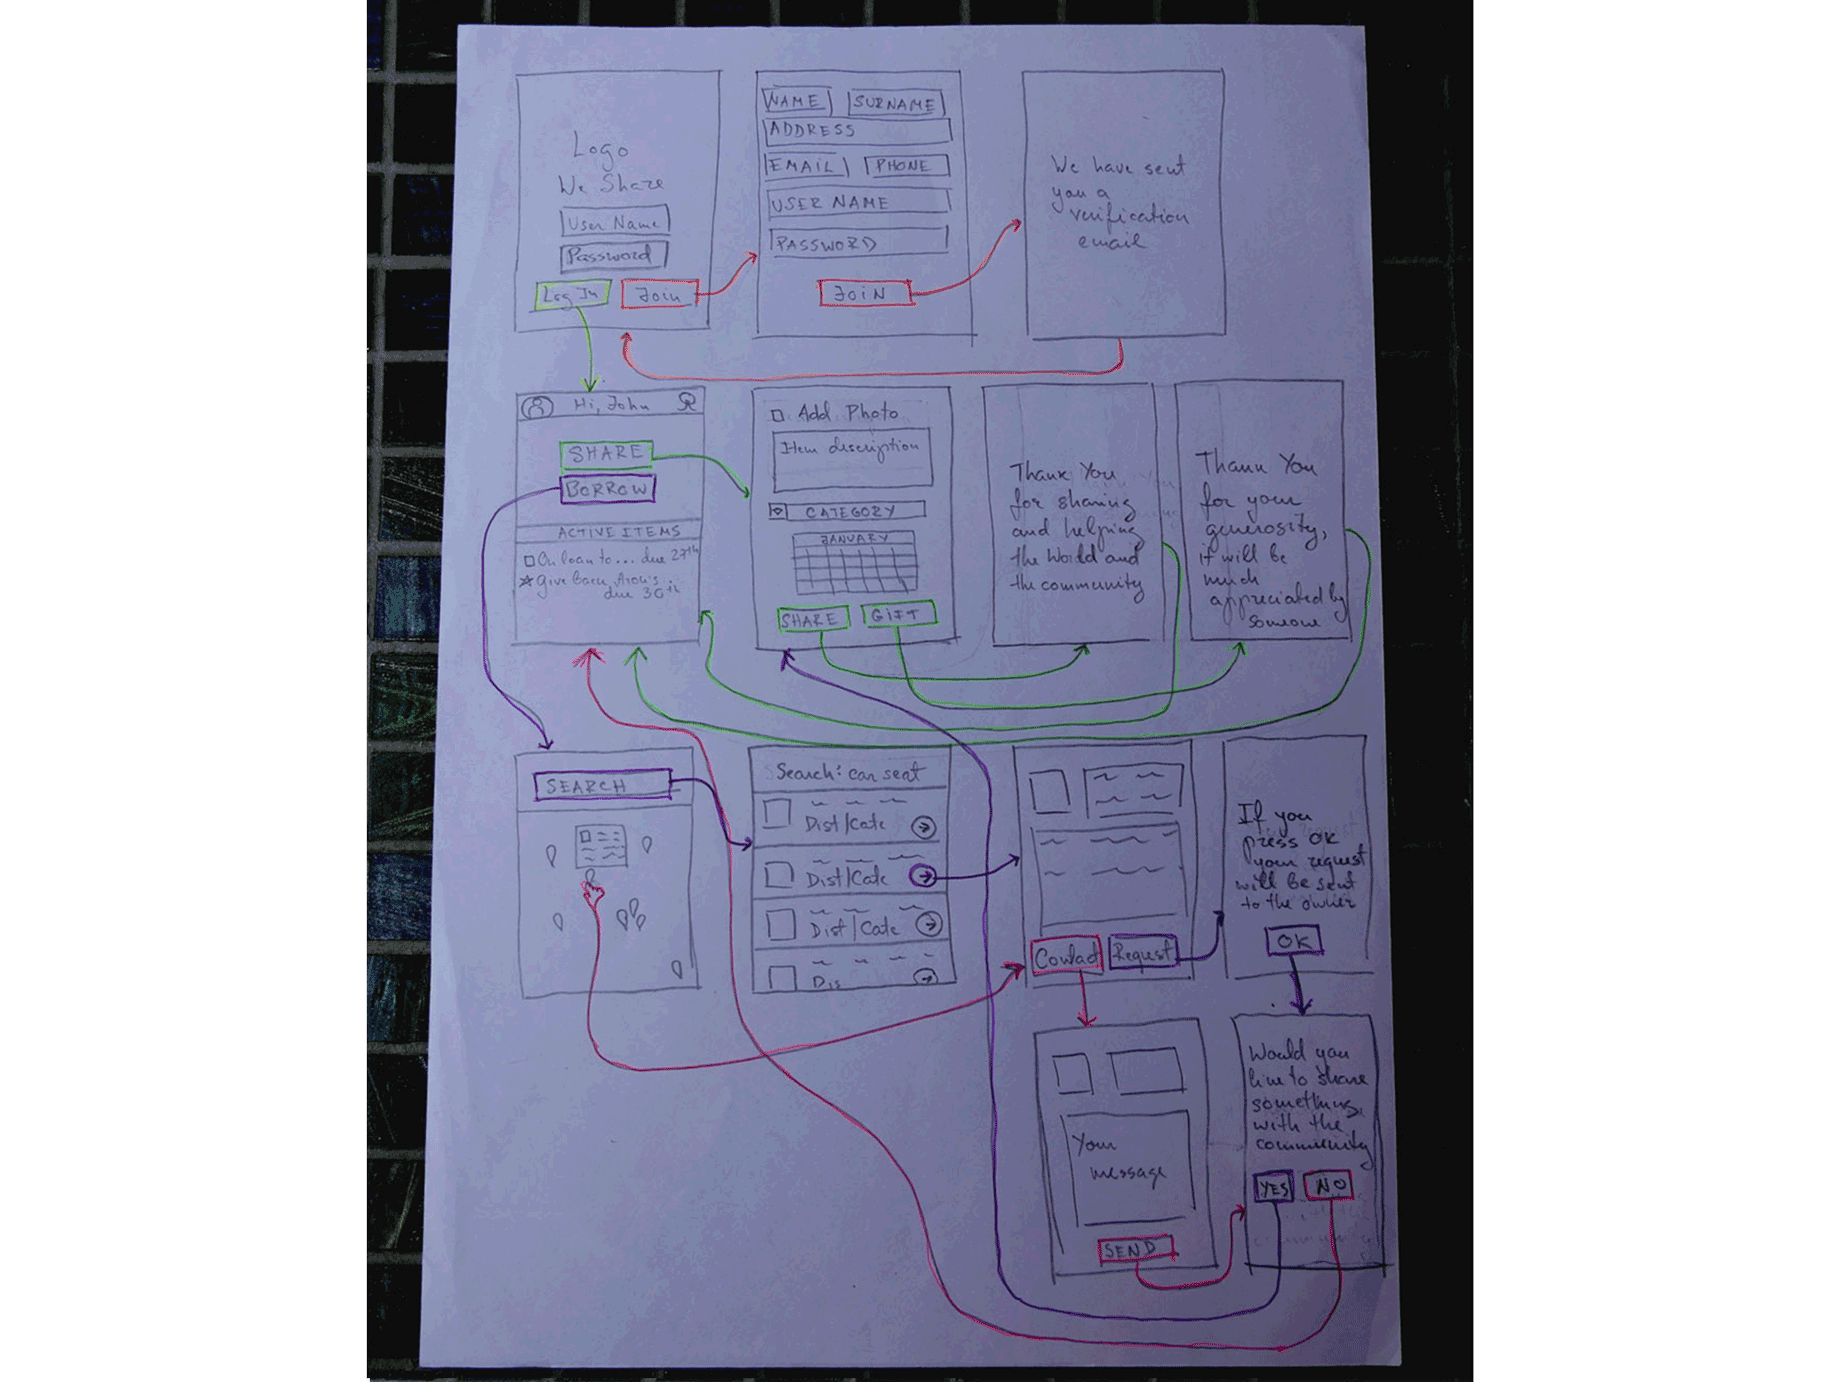 Logo
We Share
User Name
Password
Log In
Join
NAME
SURNAME
ADDRESS
EMAIL
PHONE
USER NAME
PASSWORD
JOIN
We have sent
you a
verification
email
Hi, John
SHARE
BORROW
ACTIVE ITEMS
On loan to... due 27th
Give back Aron's..
due 30th
Add Photo
Item description
CATEGORY
JANUARY
SHARE
GIFT
Thank You
for sharing
and helping
the World and
the community
Thank You
for your
generosity,
it will be
much
appreciated by
someone
SEARCH
Search: car seat
Dist/Cate
Dist/Cate
Dist/Cate
Dis
Contact
Request
If you
press OK
your request
will be sent
to the owner
OK
Your
message
SEND
Would you
like to share
something
with the
community
YES
NO